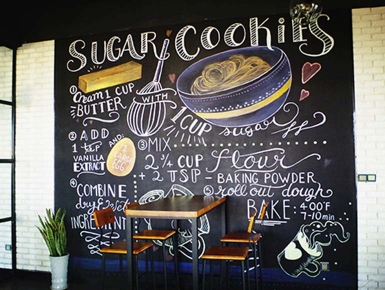 SUGAR COOKIES
① Cream 1 CUP
BUTTER
WITH
1 CUP
sugar
② ADD
1 tsp
VANILLA
EXTRACT
AND
③ MIX
2 3/4 CUP flour
+ 2 TSP - BAKING POWDER
④ COMBINE
dry &
INGREDIENT
⑤ roll out dough
BAKE 400°F
7-10 min